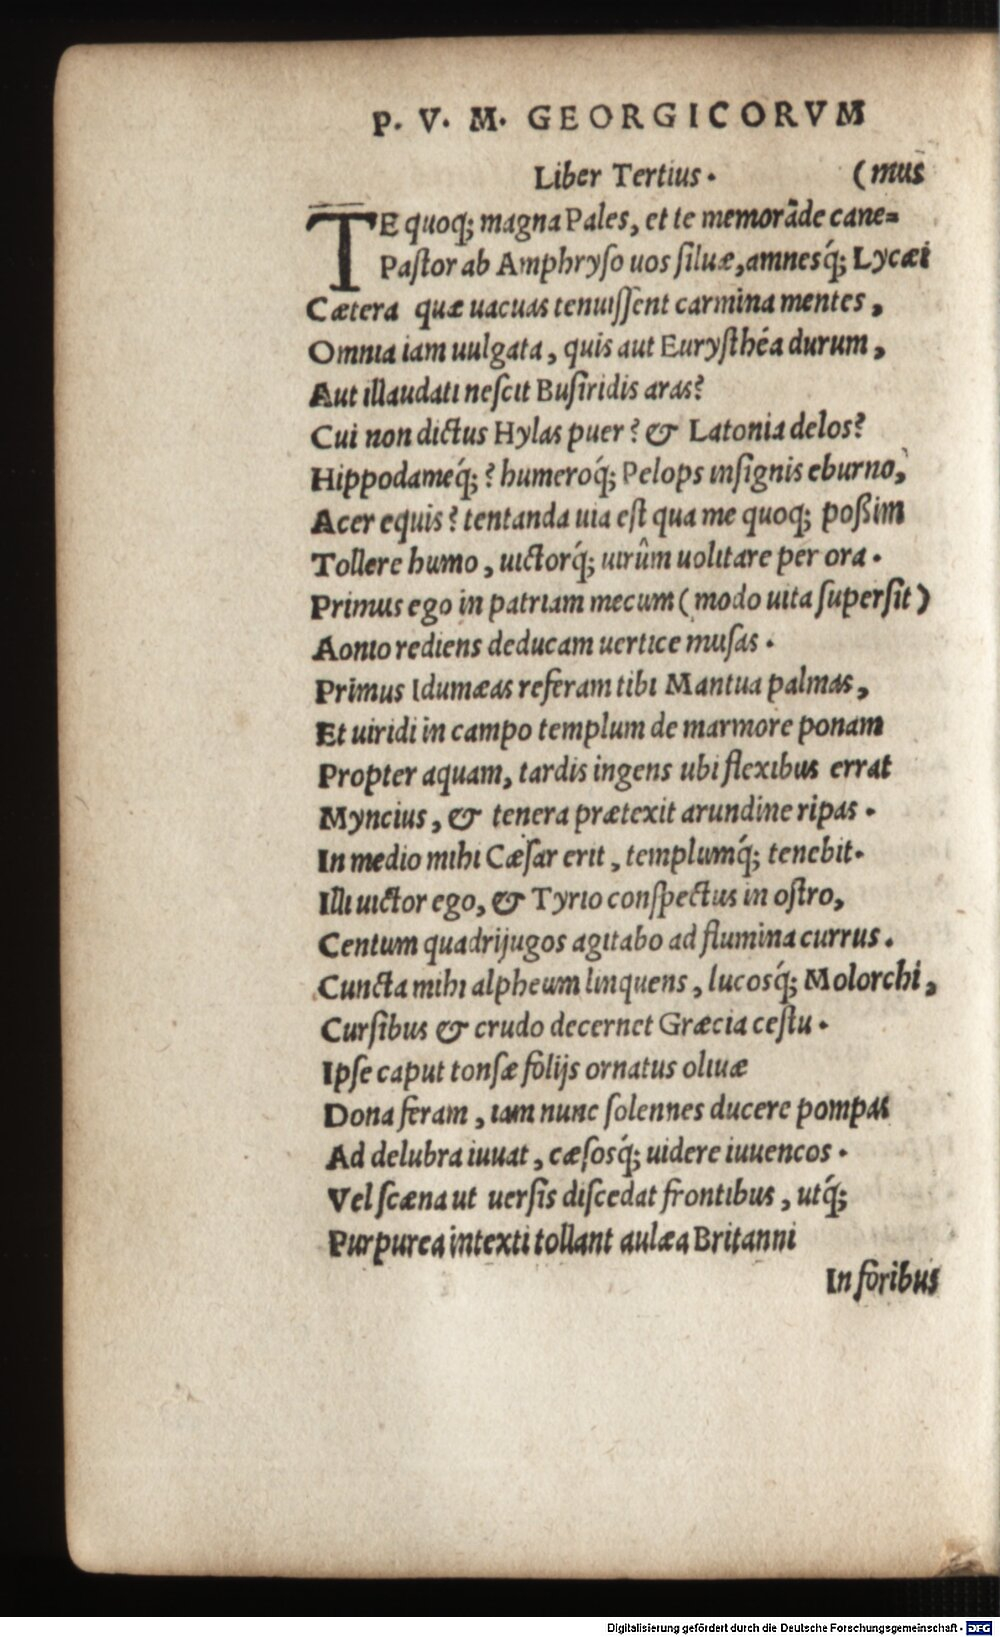 P. V. M. GEORGICORVM
Liber Tertius. (mus
TE quoq; magna Pales, et te memorāde cane=
Paſtor ab Amphryſo uos ſiluæ, amnesq́; Lycæi
Cætera quæ uacuas tenuiſſent carmina mentes,
Omnia iam uulgata, quis aut Euryſthéa durum,
Aut illaudati neſcit Buſiridis aras?
Cui non dictus Hylas puer? & Latonia delos?
Hippodameq́;? humeroq́; Pelops inſignis eburno,
Acer equis? tentanda uia eſt qua me quoq; poßim
Tollere humo, uictorq́; uirûm uolitare per ora.
Primus ego in patriam mecum (modo uita ſuperſit)
Aonio rediens deducam uertice muſas.
Primus Idumæas referam tibi Mantua palmas,
Et uiridi in campo templum de marmore ponam
Propter aquam, tardis ingens ubi flexibus errat
Myncius, & tenera prætexit arundine ripas.
In medio mihi Cæſar erit, templumq́; tenebit.
Illi uictor ego, & Tyrio conſpectus in oſtro,
Centum quadrijugos agitabo ad flumina currus.
Cuncta mihi alpheum linquens, lucosq́; Molorchi,
Curſibus & crudo decernet Græcia ceſtu.
Ipſe caput tonſæ folijs ornatus oliuæ
Dona feram, iam nunc ſolennes ducere pompas
Ad delubra iuuat, cæſosq́; uidere iuuencos.
Vel ſcæna ut uerſis diſcedat frontibus, utq́;
Purpurea intexti tollant aulæa Britanni
In foribus
Digitalisierung gefördert durch die Deutsche Forschungsgemeinschaft - DFG